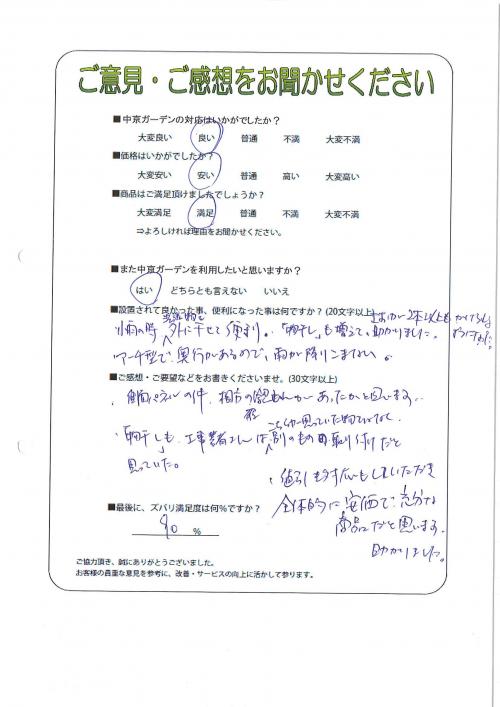 ご意見・ご感想をお聞かせください
■中京ガーデンの対応はいかがでしたか？
大変良い 良い 普通 不満 大変不満
■価格はいかがでしたか？
大変安い 安い 普通 高い 大変高い
■商品はご満足頂けましたでしょうか？
大変満足 満足 普通 不満 大変不満
⇒よろしければ理由をお聞かせください。
■また中京ガーデンを利用したいと思いますか？
はい どちらとも言えない いいえ
■設置されて良かった事、便利になった事は何ですか？(20文字以上)
小雨の時 洗濯物を外に干せて便利。「物干し」も増えて、助かりました。
アーチ型で、奥行があるので、雨が降りこまない。
■ご感想・ご要望などをお書きくださいませ。(30文字以上)
側面パネルの件、相方の
あったかと思います。
「物干し」も、工事業者さんは 別のもの 取り付けだと
思っていた。
値引しも
いただき
全体的に安価で、充分な
商品だと思います。
助かりました。
■最後に、ズバリ満足度は何％ですか？
90 ％
ご協力頂き、誠にありがとうございました。
お客様の貴重な意見を参考に、改善・サービスの向上に活かして参ります。